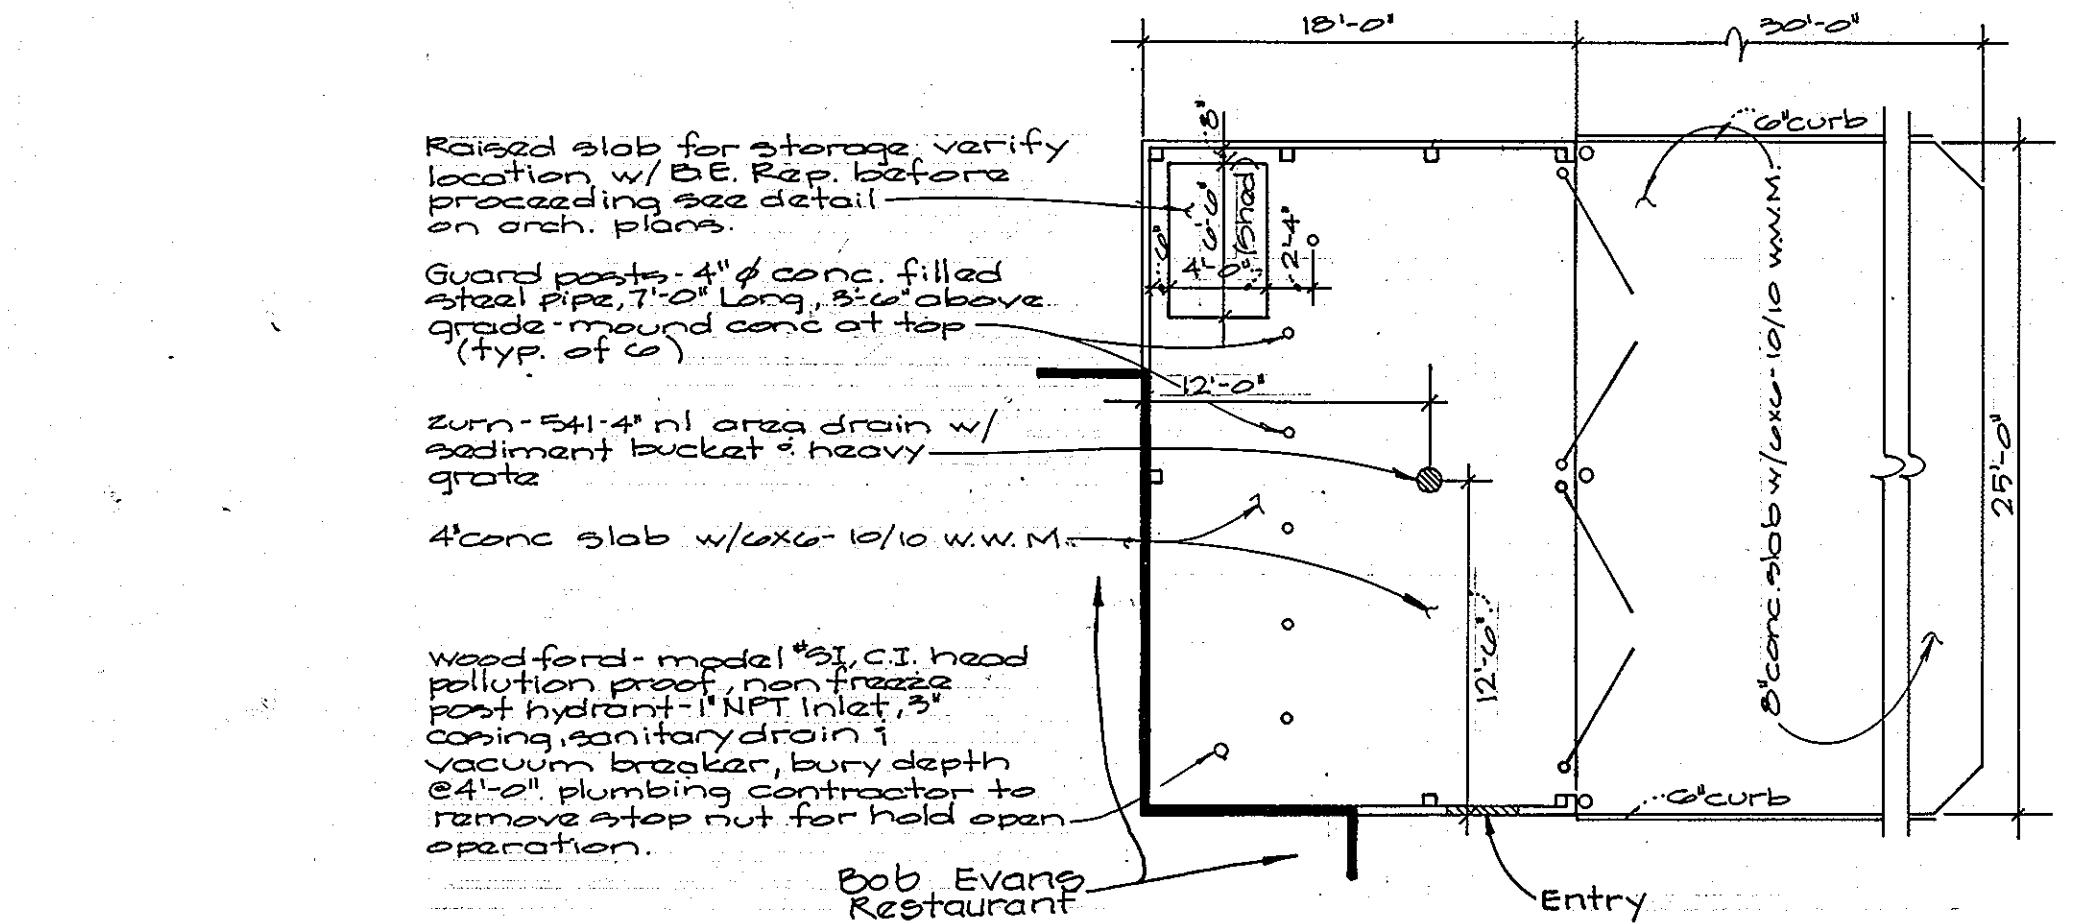 18'-0"
30'-0"
6" curb
Raised slab for storage verify
location w/ B.E. Rep. before
proceeding see detail
on arch. plans.
8"
6'-6"
(Shed)
6"
4'-0"
2'-4"
Guard posts - 4" ϕ conc. filled
steel pipe, 7'-0" Long, 3'-6" above
grade - mound conc at top
(typ. of 6)
12'-0"
Zurn - 541-4" nl area drain w/
sediment bucket & heavy
grate
4" conc slab w/6x6- 10/10 W.W.M.
8" conc. slab w/6x6-10/10 W.W.M.
25'-0"
12'-6"
Woodford - model #SI, C.I. head
pollution proof, non freeze
post hydrant - 1" NPT Inlet, 3"
casing, sanitary drain &
vacuum breaker, bury depth
@4'-0". plumbing contractor to
remove stop nut for hold open
operation.
6" curb
Bob Evans
Restaurant
Entry